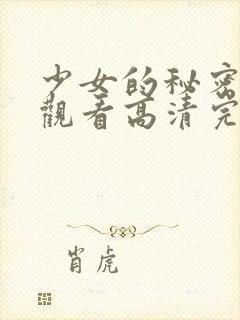 少女的秘密
觀看高清完
肖虎